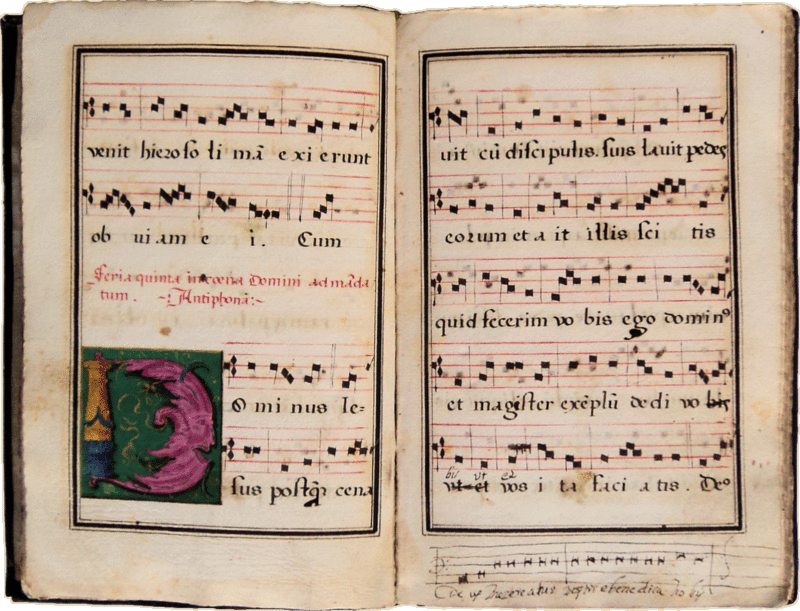 venit hieroso li mā e xi e runt
ob vi am e i. Cum
Feria quinta in coena Domini ad māda
tum. Antiphona:
D O mi nus Ie-
sus postq̄ cena
uit cū discipulis. suis lauit pedes
eorum et a it illis sci tis
quid fecerim vo bis ego domin⁹
et magister exēplū de di vo bis
bis ut et
ut et vos i ta faci a tis. De⁹